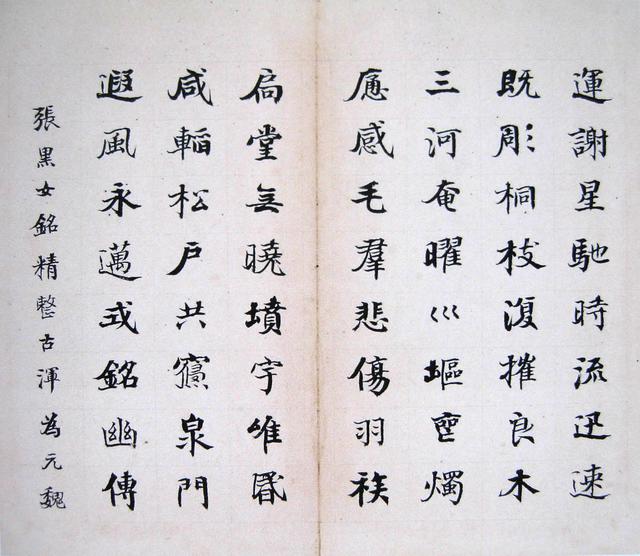 運謝星馳時流迅速
既彫桐枝復摧良木
三河奄曜巛塸燭
感毛羣悲傷羽族
扃堂无曉墳宇唯昬
咸韜松戶共寢泉門
遐風永邁式銘幽傳
張黑女銘精整古渾為元魏